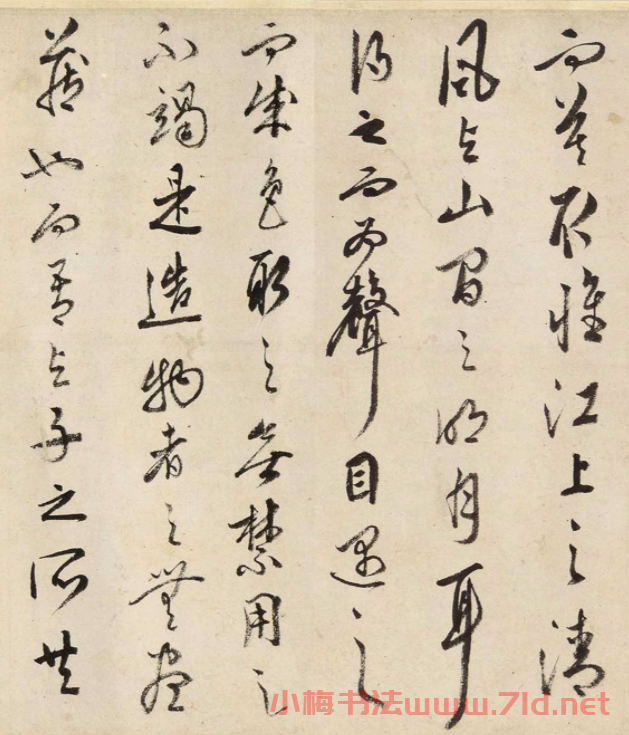 而莫取惟江上之清
風與山間之明月耳
得之而為聲目遇之
而成色取之無禁用之
不竭是造物者之無盡
藏也而吾與子之所共
小梅书法www.7ld.net